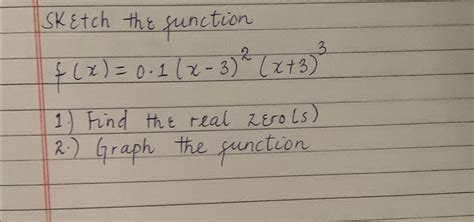 SKetch the function
f(x) = 0.1 (x-3)² (x+3)³
1.) Find the real zero(s)
2.) Graph the function